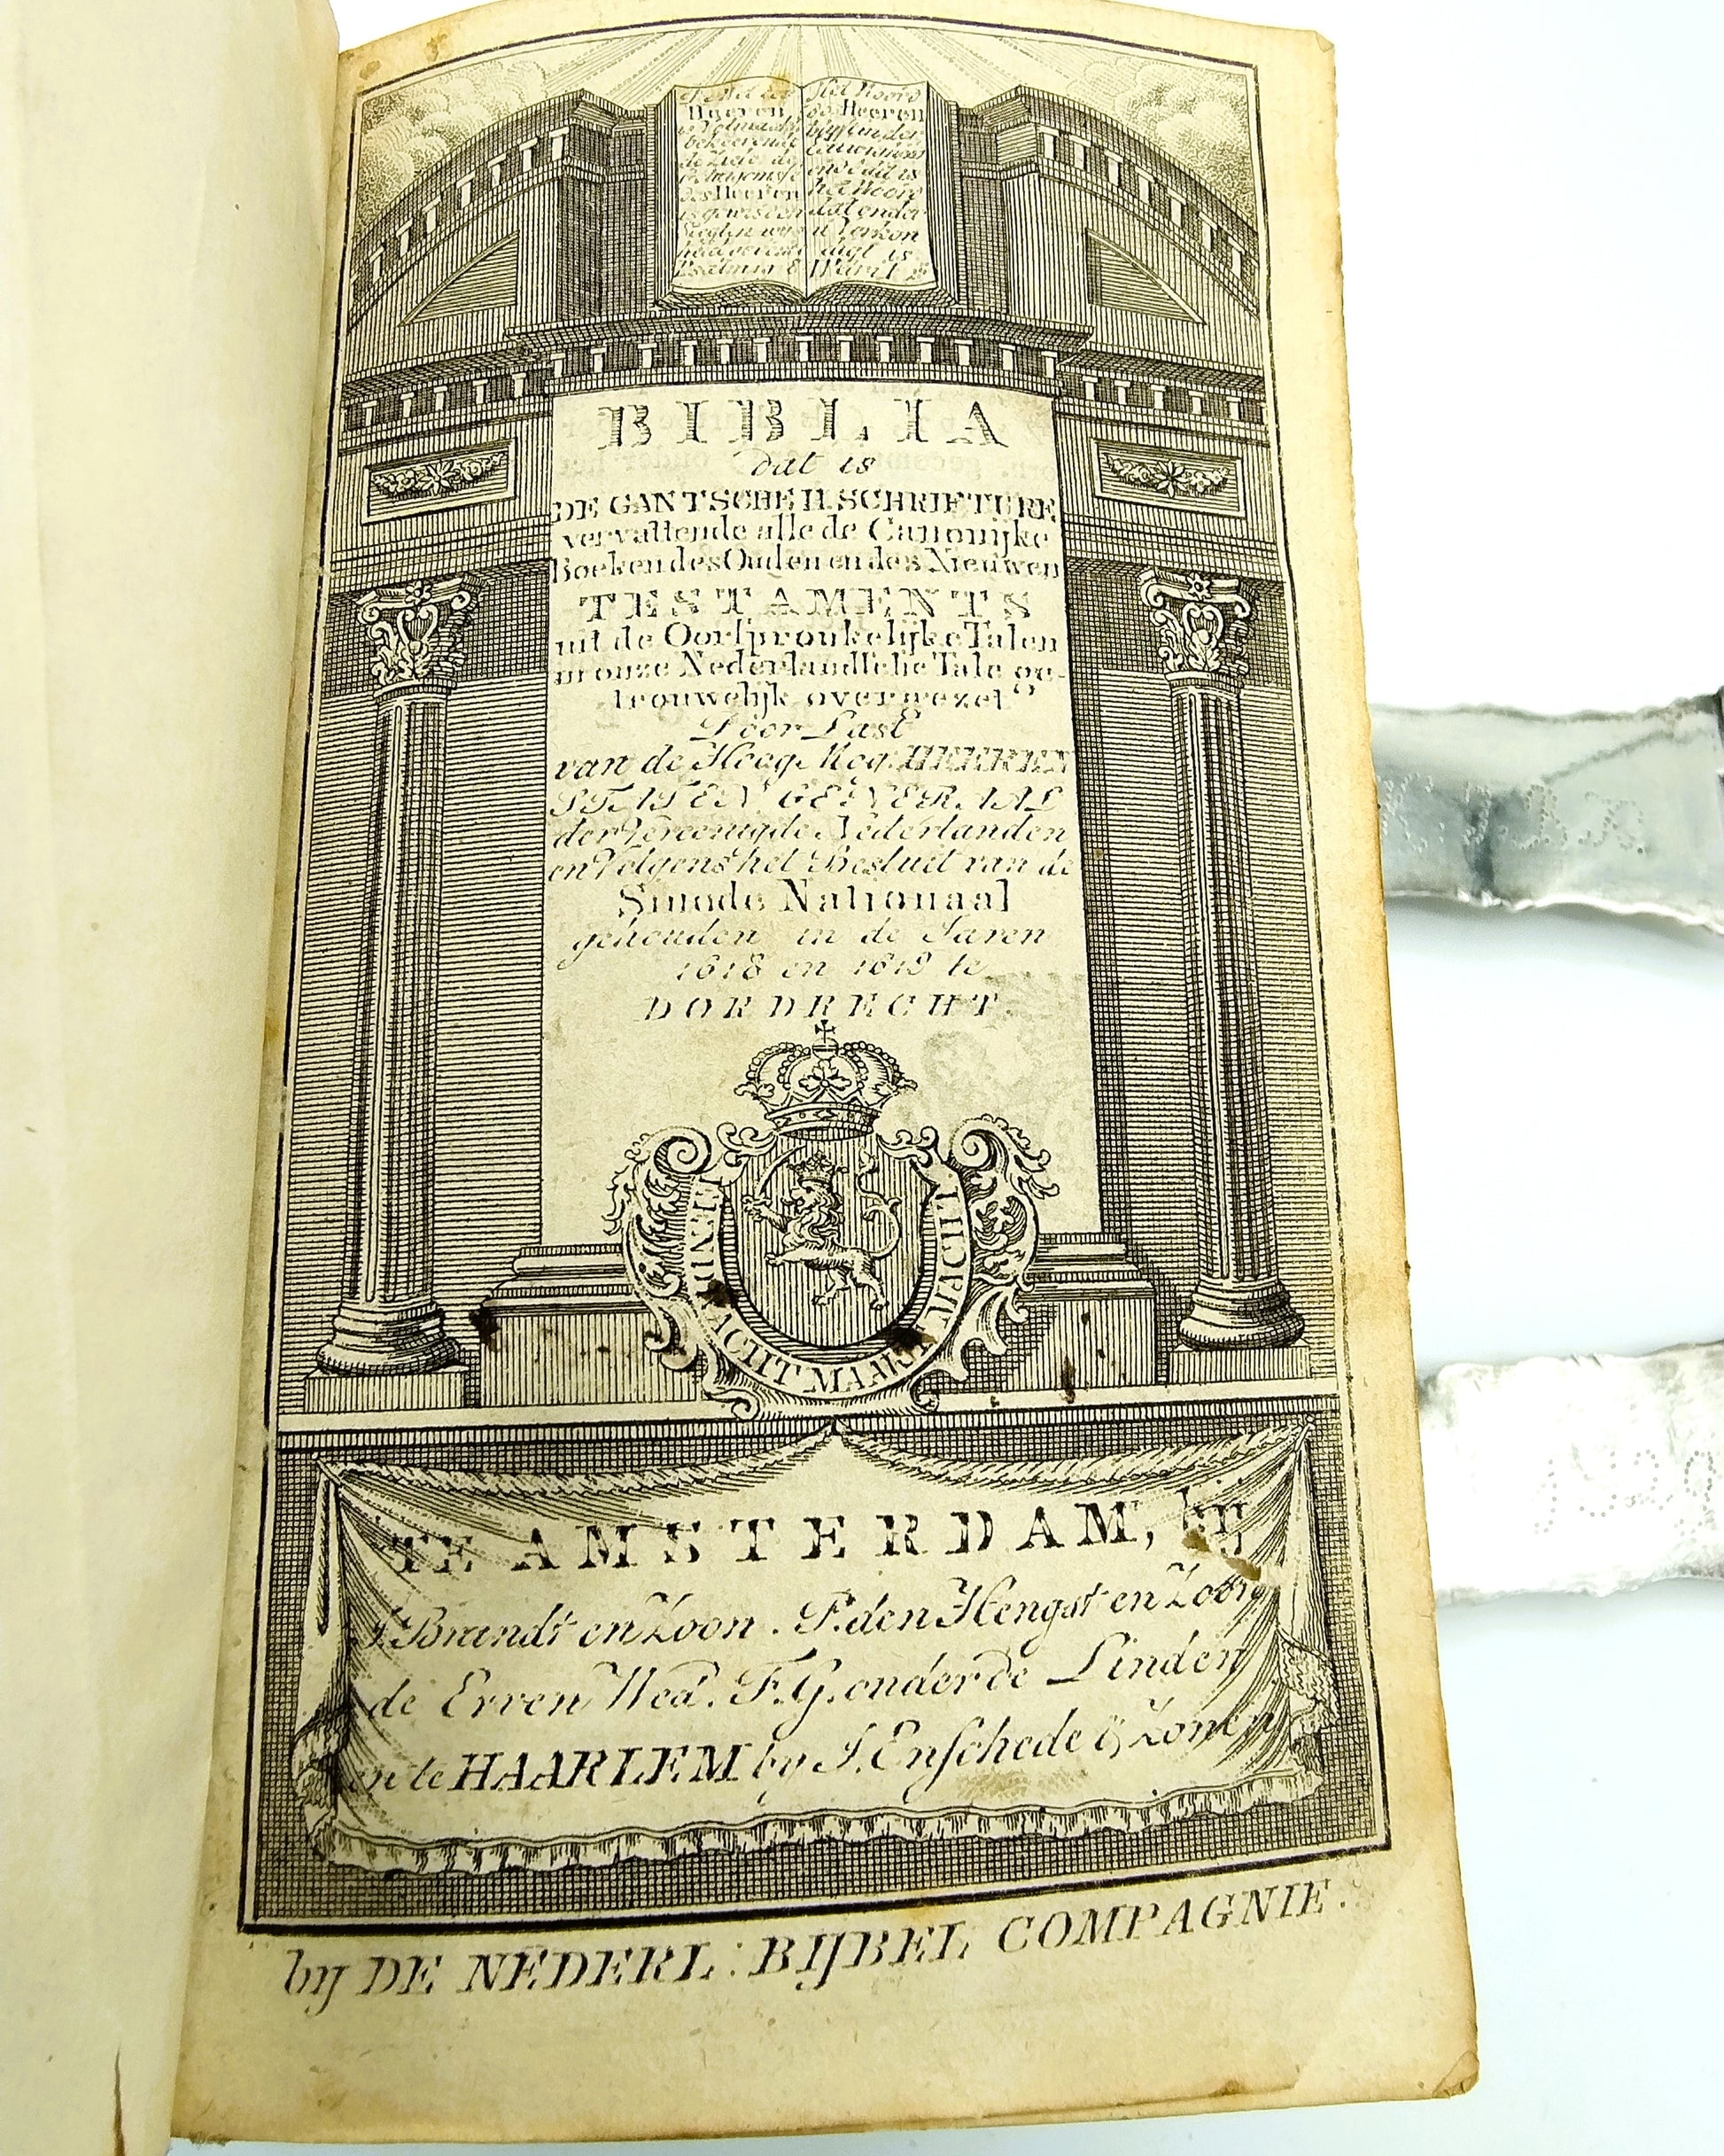 Heeren
is
bekeerende
de Ziele de
des Heeren
Het Woord
des Heeren
blyft in der
Eeuwigheid
ende dit is
het Woord
dat onder
u verkon
digt is
BIBLIA
dat is
DE GANTSCHE H. SCHRIFTURE
vervattende alle de Canonijke
Boeken des Ouden en des Nieuwen
TESTAMENTS
uit de Oorſpronkelijke Talen
in onze Nederlandſche Tale ge-
trouwelijk overgezet
Door Last
van de Hoog Mog. HEEREN
STATEN GENERAAL
der Vereenigde Nederlanden
en Volgens het Besluit van de
Sinode Nationaal
gehouden in de Jaren
1618 en 1619 te
DORDRECHT.
EENDRACHT MAAKT
TE AMSTERDAM, bij
J. Brandt en Zoon. P. den Hengst en Zoon
de Erven Wed. F.G. onder de Linden
en te HAARLEM by J. Enſchede & Zonen
bij DE NEDERL: BIJBEL COMPAGNIE.